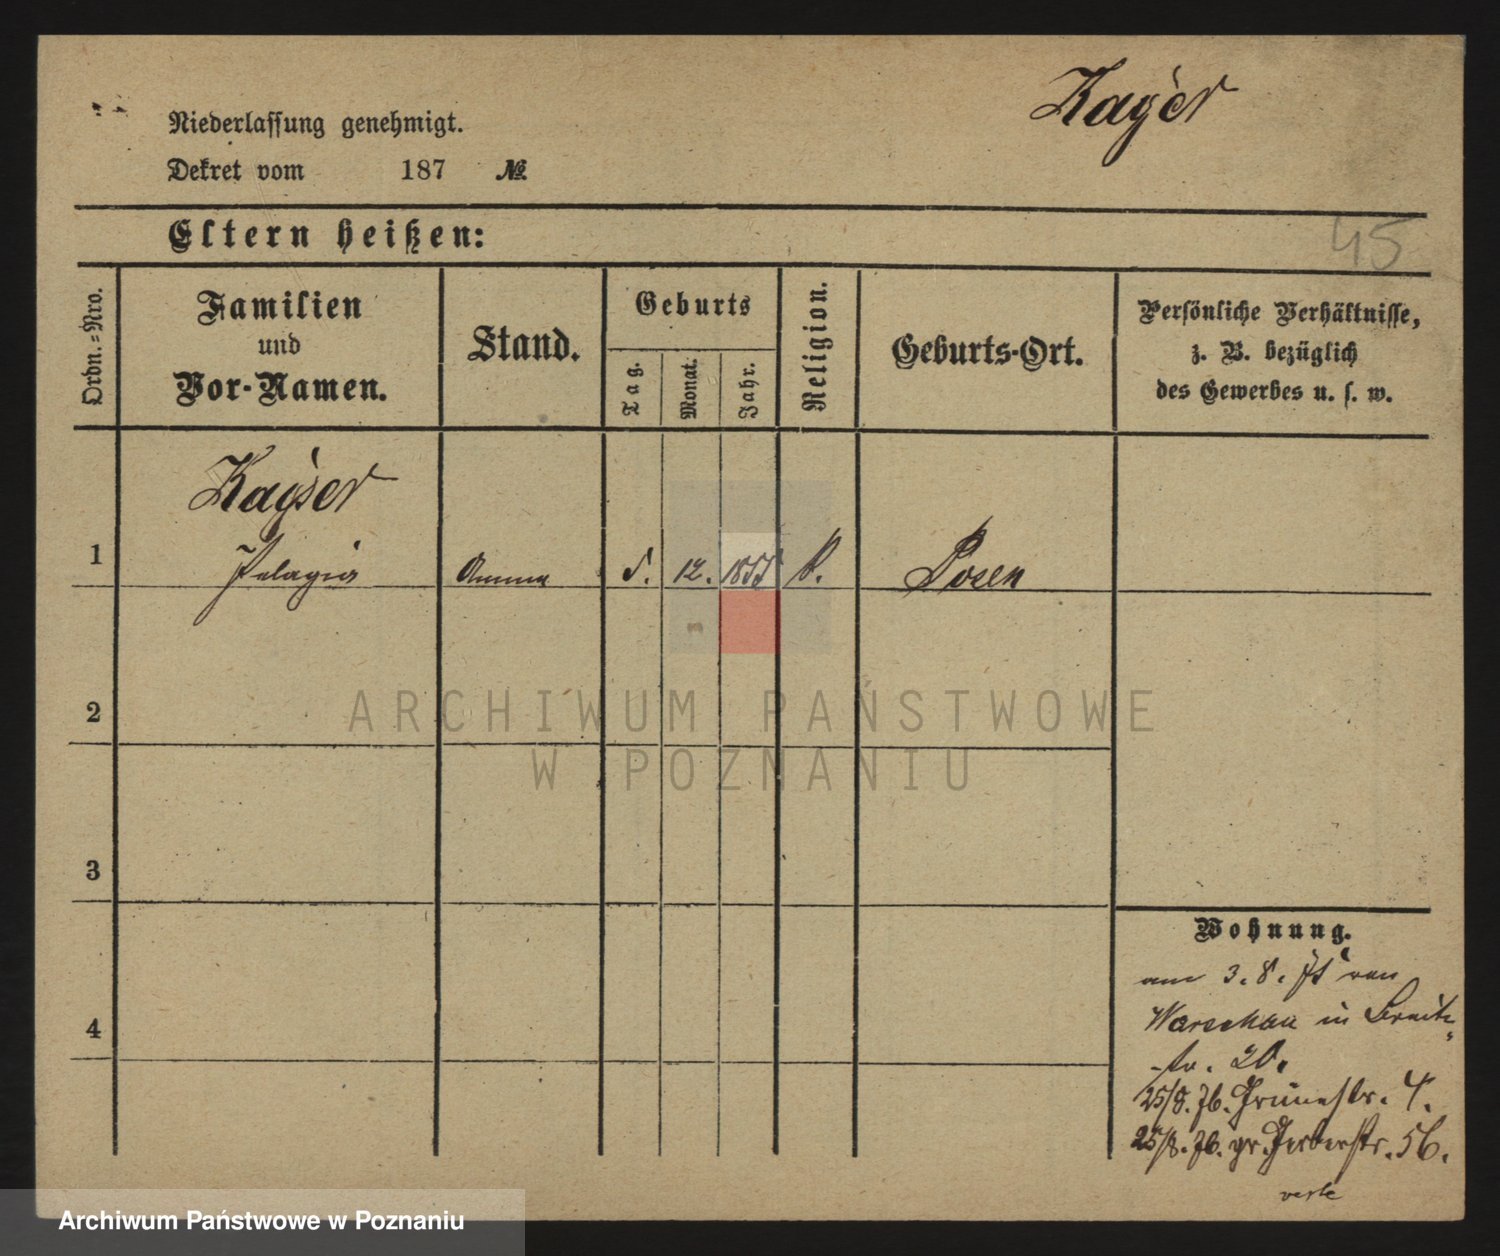 Kayser
Niederlassung genehmigt.
Dekret vom 187 №
Eltern heißen:
45
Ordn.-Nro.
Familien
und
Vor-Namen.
Stand.
Geburts
Tag.
Monat.
Jahr.
Religion.
Geburts-Ort.
Persönliche Verhältnisse,
z. B. bezüglich
des Gewerbes u. s. w.
Kayser
1 Pelagia Amme 5. 12. 1855 k. Posen
2
3
4
Wohnung.
am 3. 8. von
Warschau in Breite
str. 20.
25/8. 76. Grünestr. 4.
25/8. 76. gr. Gerberstr. 56.
ARCHIWUM PAŃSTWOWE
W POZNANIU
Archiwum Państwowe w Poznaniu